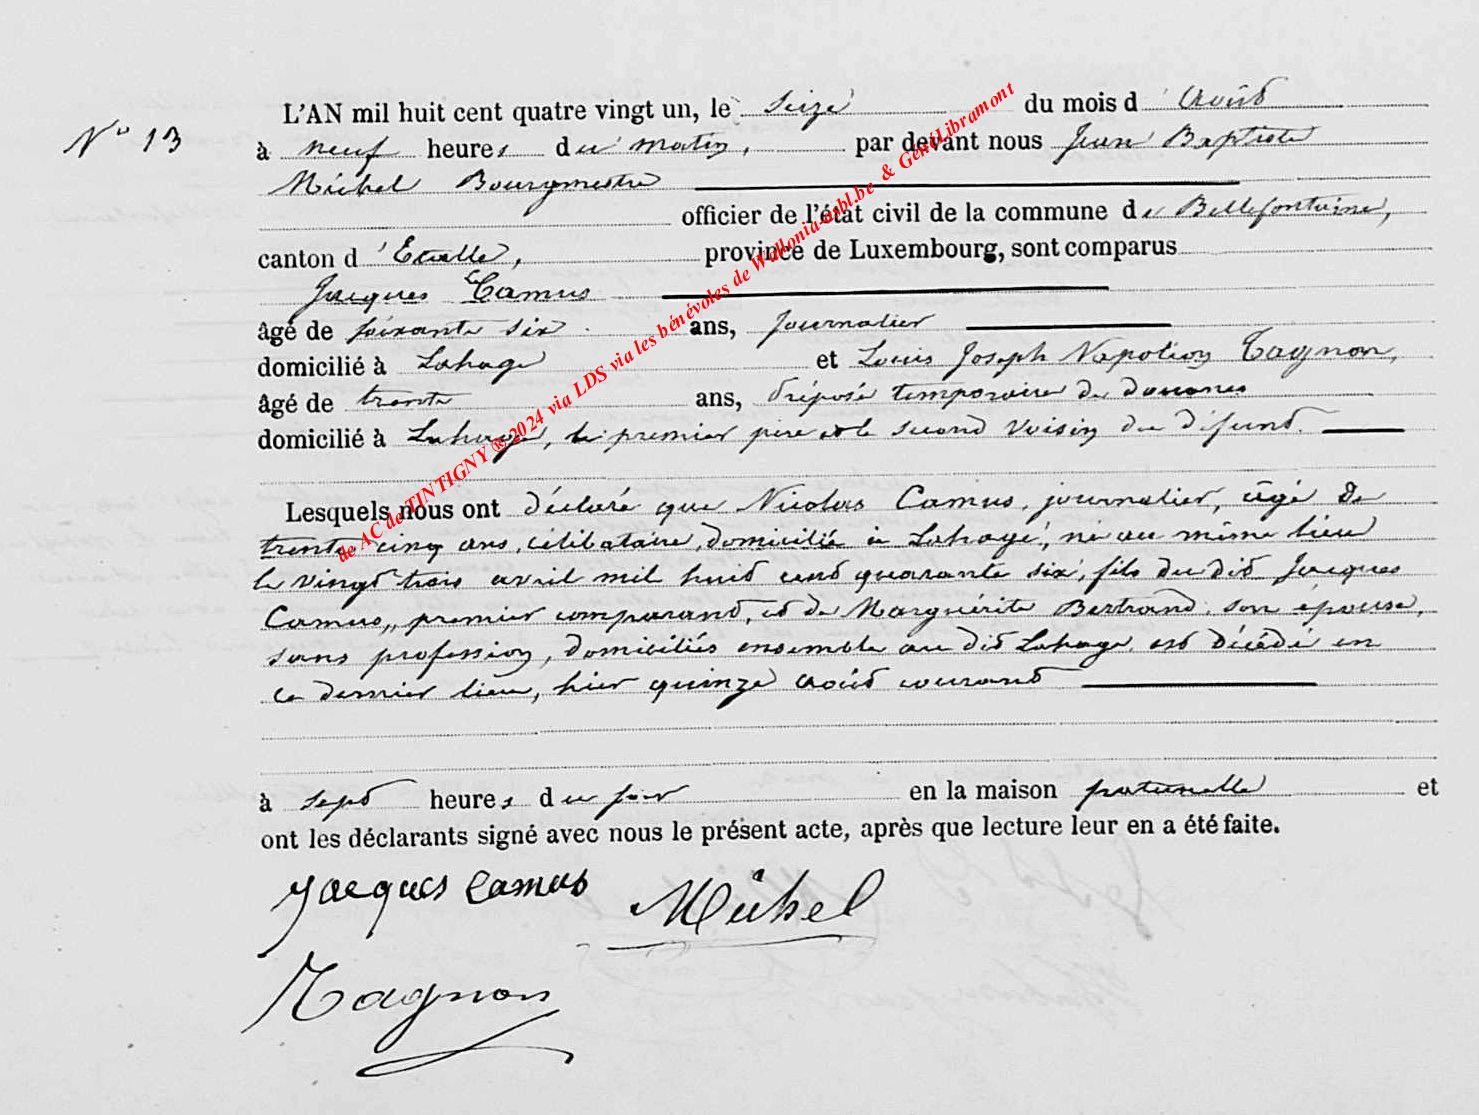 N° 13
L'AN mil huit cent quatre vingt un, le seize du mois d'août
à neuf heures du matin, par devant nous Jean Baptiste
Michel Bourgmestre
officier de l'état civil de la commune de Bellefontaine,
canton d'Etalle, province de Luxembourg, sont comparus
Jacques Camus
âgé de soixante six ans, journalier
domicilié à Lahage et Louis Joseph Napoléon Tagnon,
âgé de trente ans, préposé temporaire des douanes
domicilié à Lahage, le premier père et le second voisin du défunt.
Lesquels nous ont déclaré que Nicolas Camus, journalier, âgé de
trente cinq ans, célibataire, domicilié à Lahage, né au même lieu
le vingt trois avril mil huit cent quarante six, fils du dit Jacques
Camus, premier comparant, et de Marguérite Bertrand, son épouse,
sans profession, domiciliés ensemble au dit Lahage, est décédé en
ce dernier lieu, hier quinze août courant
à sept heures du soir en la maison paternelle et
ont les déclarants signé avec nous le présent acte, après que lecture leur en a été faite.
Jacques Camus
Michel
Tagnon
de AC de TINTIGNY ® 2024 via LDS via les bénévoles de Wallonia-asbl.be & GeniLibramont